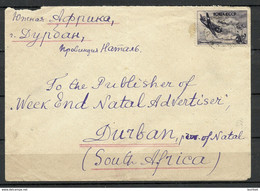 Южная Африка,
г. Дурбан,
Провинция Наталь.
To the Publisher of
"Week End Natal Advertiser",
Durban, prov. of Natal
(South Africa)